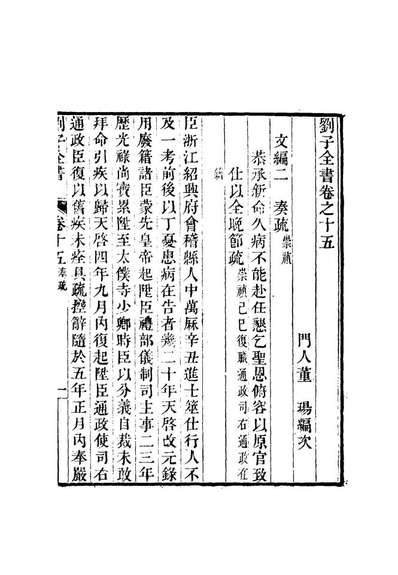 劉子全書卷之十五
門人董 瑒編次
文編二 奏疏崇禎
恭承新命久病不能赴任懇乞聖恩俯容以原官致
仕以全晚節疏崇禎己巳復職通政司右通政在
籍
臣浙江紹興府會稽縣人中萬厤辛丑進士筮仕行人不
及一考前後以丁憂患病在告者幾二十年天啓改元錄
用廢籍諸臣蒙先皇帝起陞臣禮部儀制司主事二三年
歷光祿尚寶累陞至太僕寺少卿時臣以分義自裁未敢
拜命引疾以歸天啓四年九月內復起陞臣通政使司右
通政臣復以舊疾未痊具疏控辭隨於五年正月內奉嚴
劉子全書 卷十五奏疏 一